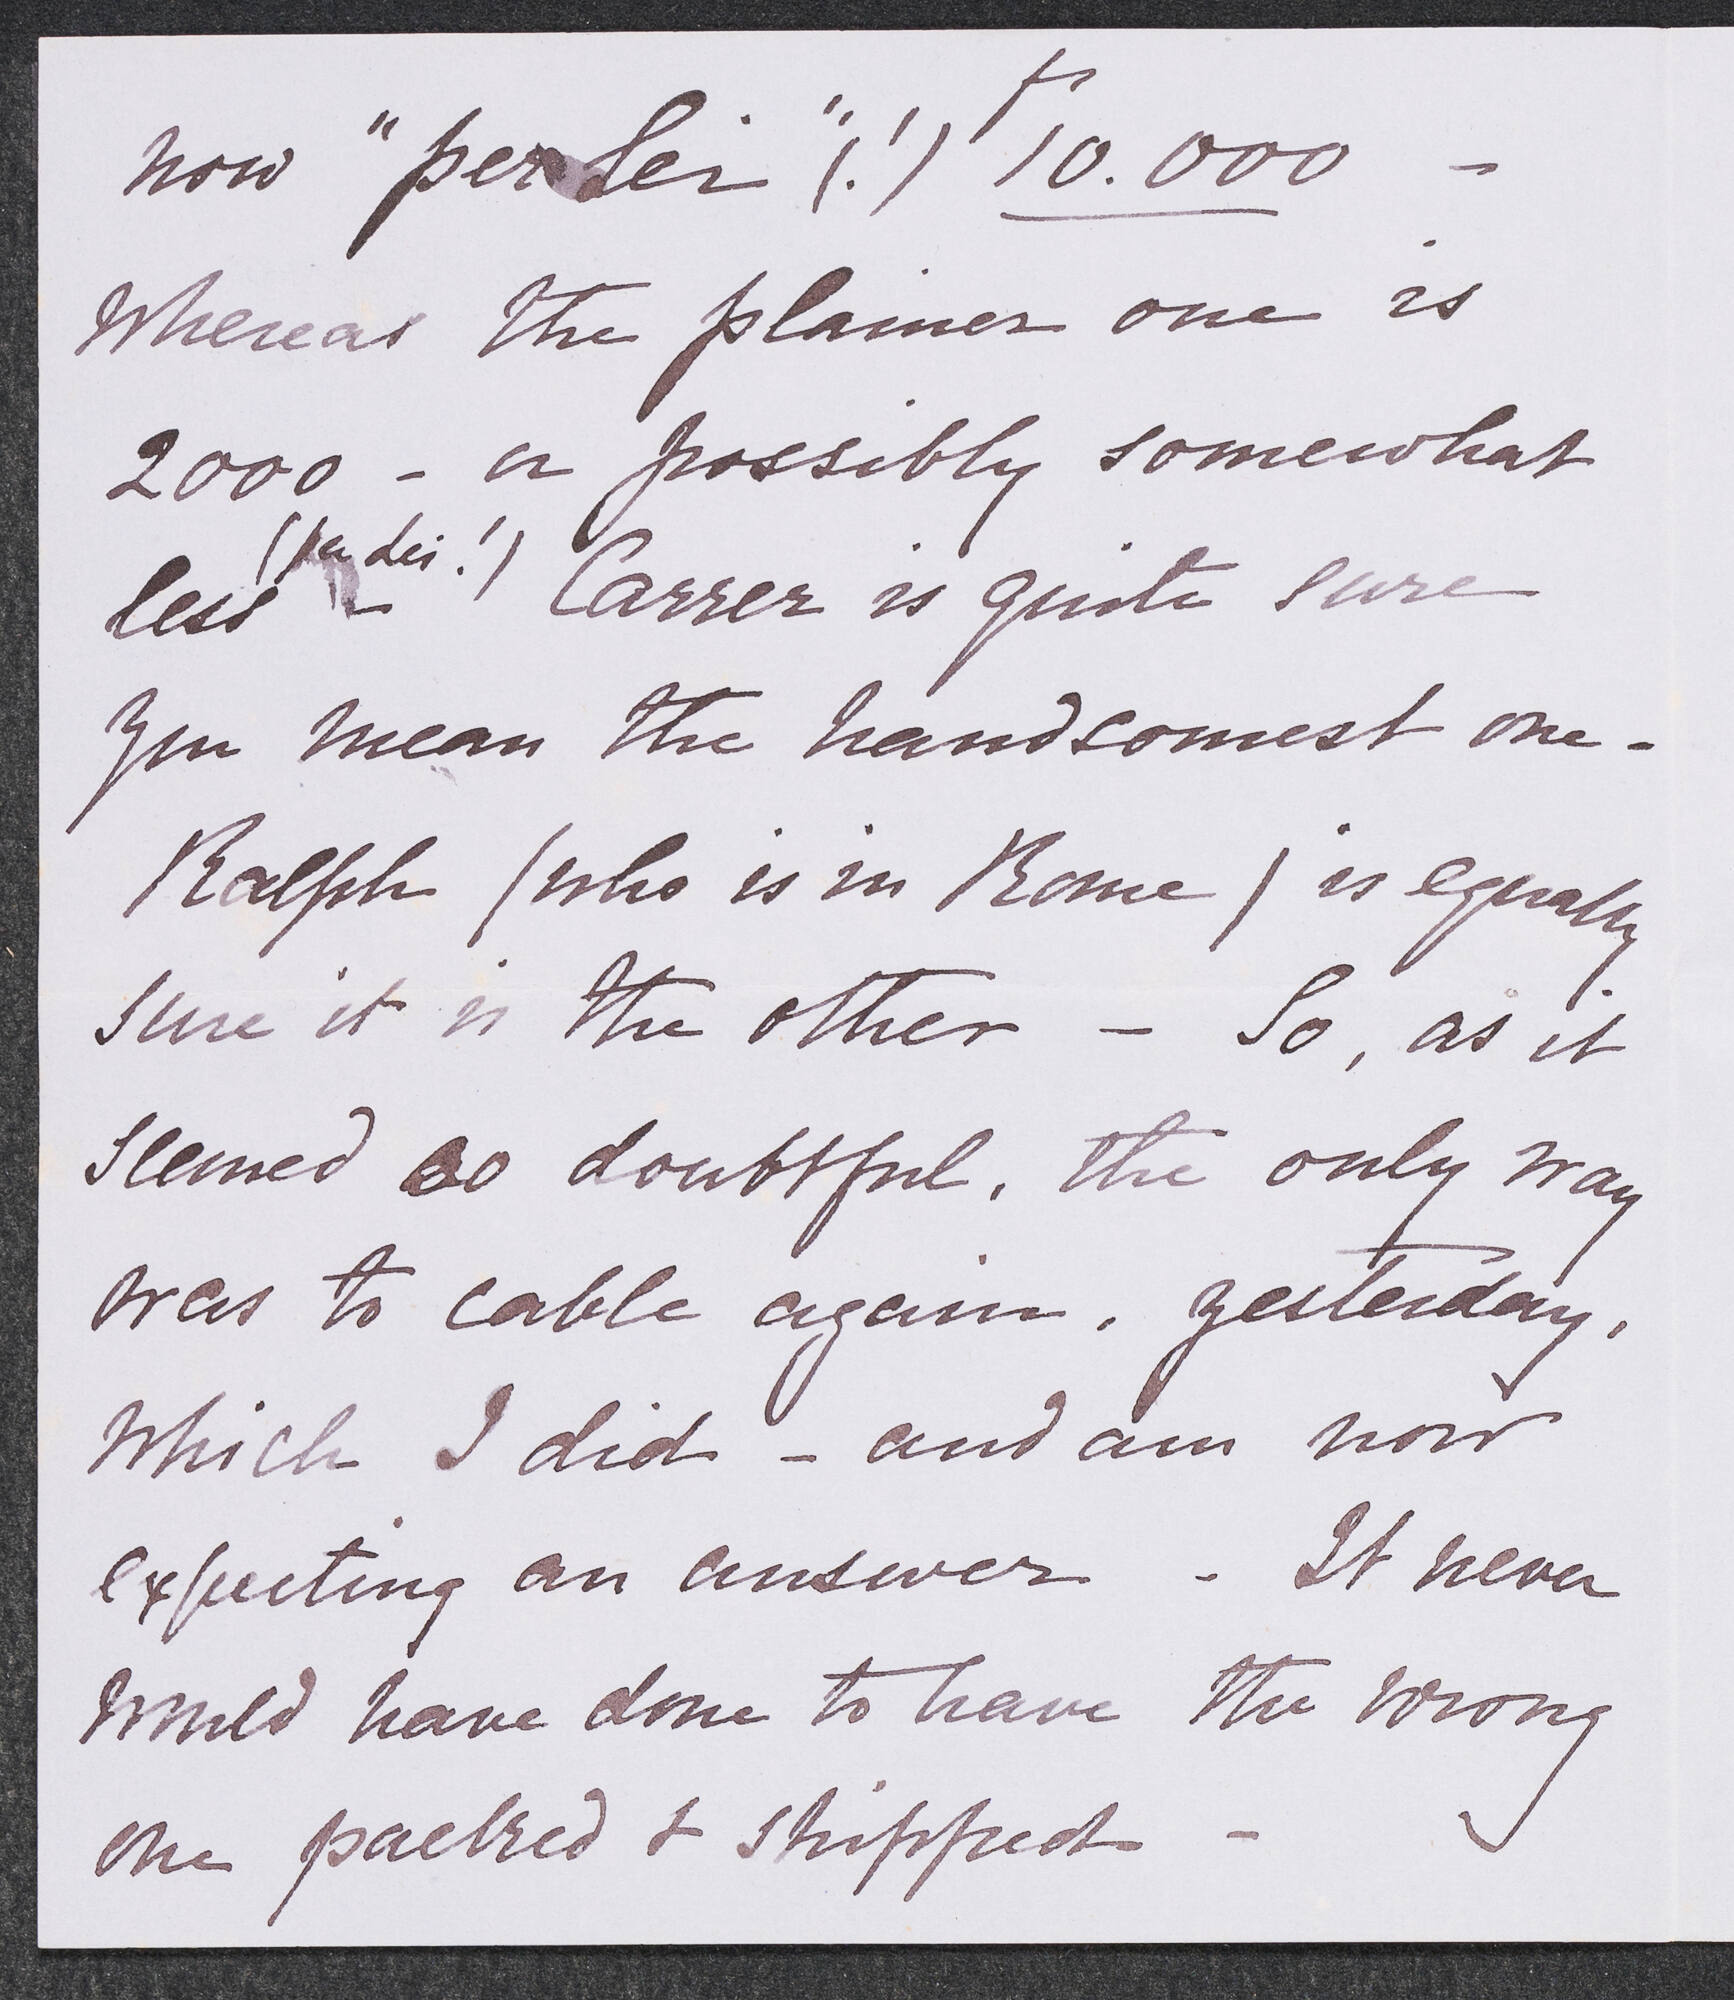 now "per Lei" (!) frs 10.000 -
Whereas the plainer one is
2000 - or possibly somewhat
less (per Lei!) - Carrer is quite sure
you mean the handsomest one -
Ralph (who is in Rome) is equally
sure it is the other - So, as it
seemed so doubtful, the only way
was to cable again, yesterday,
which I did - and am now
expecting an answer - It never
would have done to have the wrong
one packed & shipped -